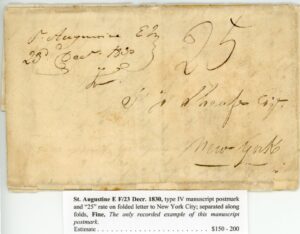 St. Augustine E F
23d Decr. 1830
25
New-York
St. Augustine E F/23 Decr. 1830, type IV manuscript postmark
and "25" rate on folded letter to New York City; separated along
folds, Fine. The only recorded example of this manuscript
postmark.
Estimate . . . . . . . . . . . . . . . . . . . . . . . . . . . . . $150 - 200